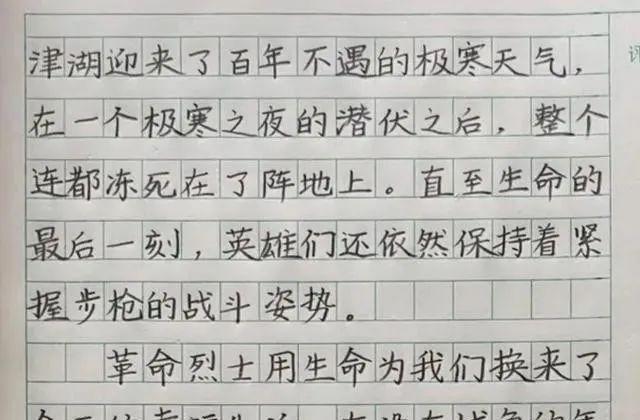 津湖迎来了百年不遇的极寒天气，
在一个极寒之夜的潜伏之后，整个
连都冻死在了阵地上。直至生命的
最后一刻，英雄们还依然保持着紧
握步枪的战斗姿势。
革命烈士用生命为我们换来了